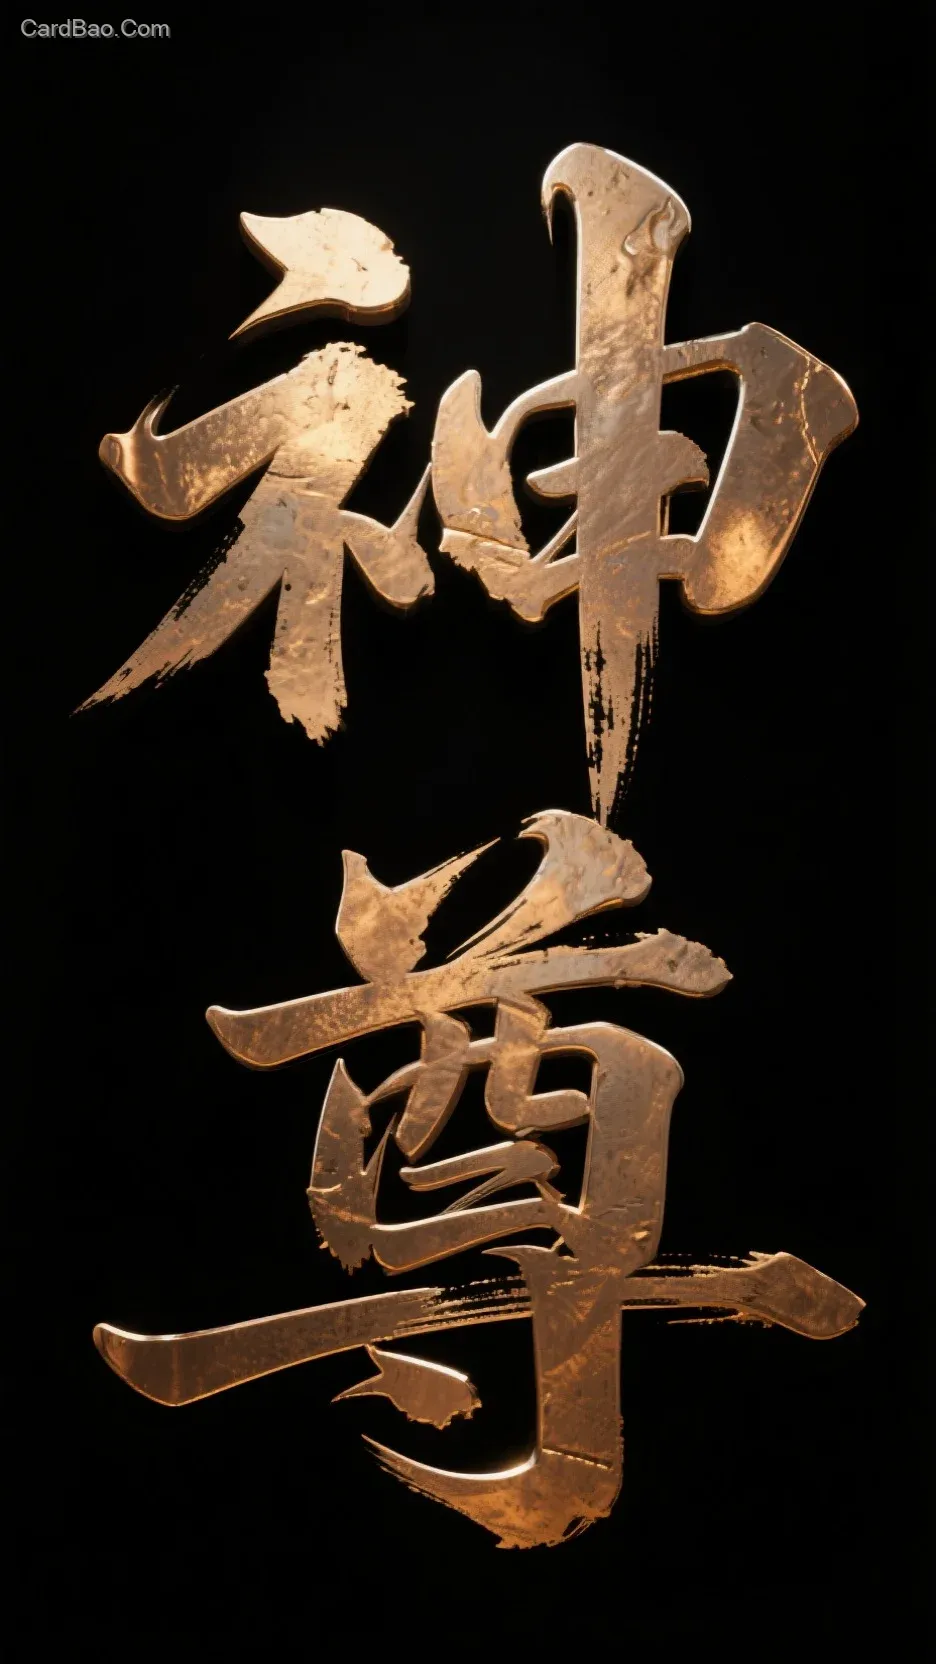 CardBao.Com
神
尊